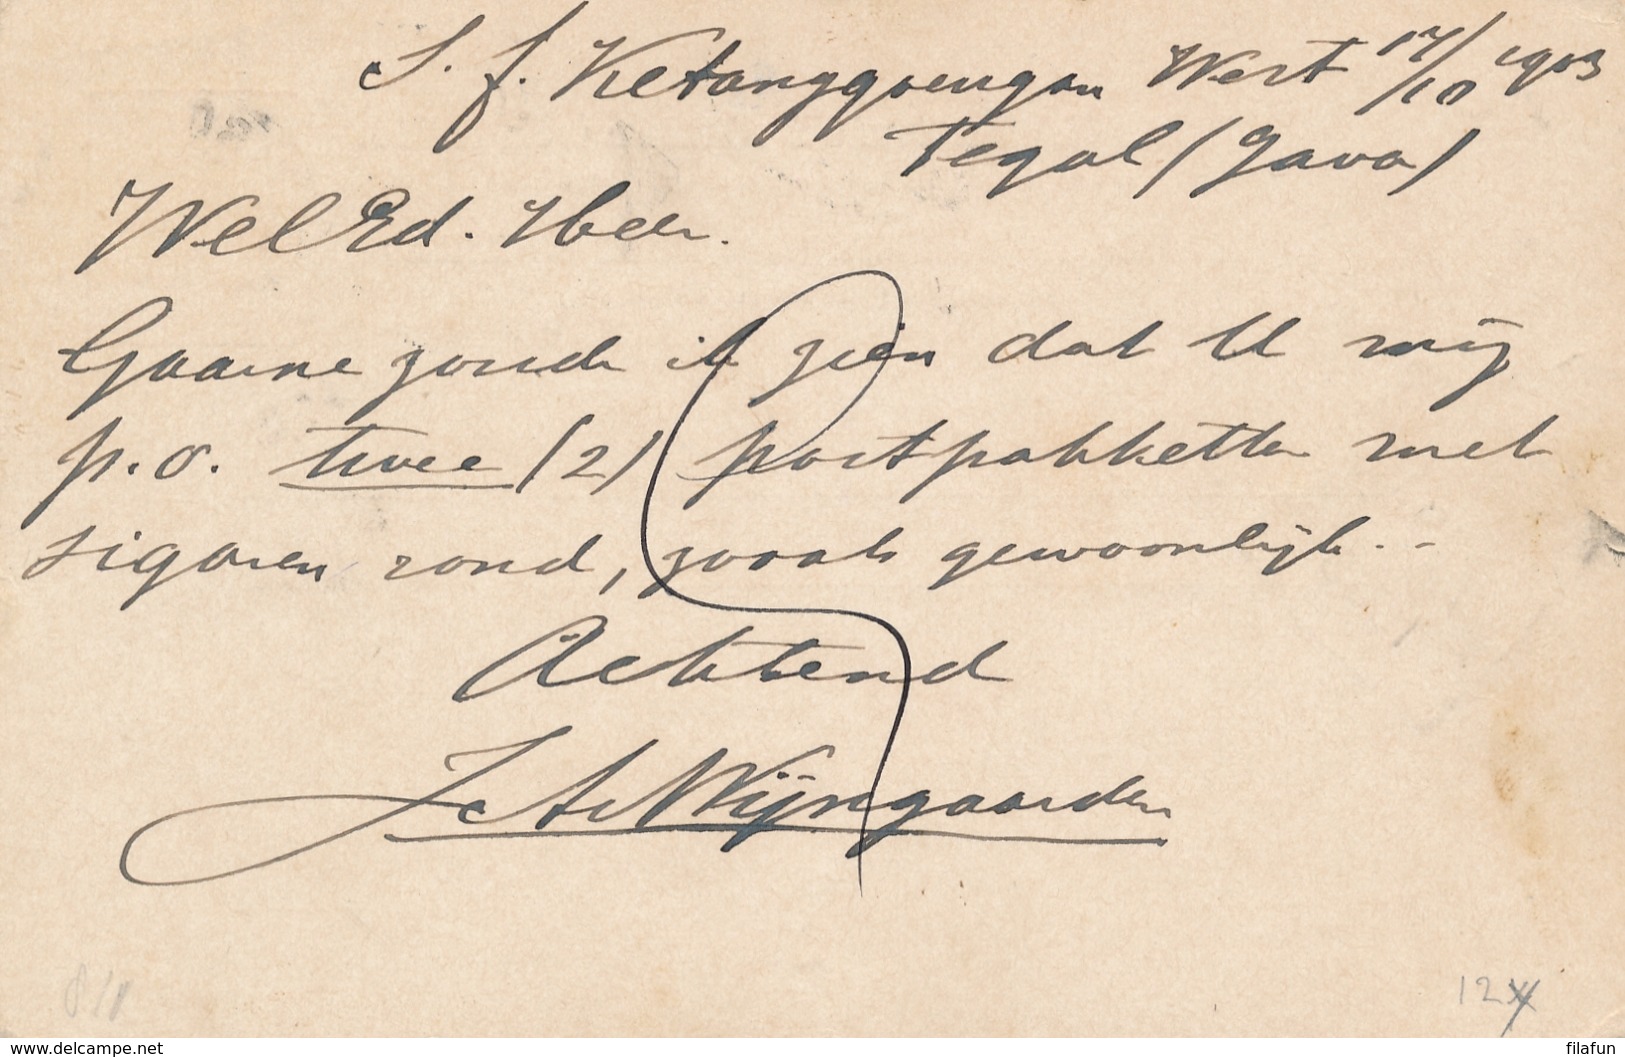 S. f. Ketanggoengan West 17/10 1903
Tegal (Java)
WelEd. Heer.
Gaarne zoude ik zien dat U mij
p.o. twee (2) postpakketten met
sigaren rond, zooals gewoonlijk. -
Achtend
J. A. Wijngaarden
12
delcampe.net
filafun